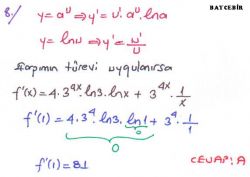 BATCEBİR
8./ y = a^u ⇒ y' = u'. a^u. lna
y = lnu ⇒ y' = u'/u
Çarpımın türevi uygulanırsa
f'(x) = 4.3^4x. ln3. lnx + 3^4x. 1/x
f'(1) = 4.3^4. ln3. ln1 + 3^4. 1/1
0
0
f'(1) = 81
CEVAP: A